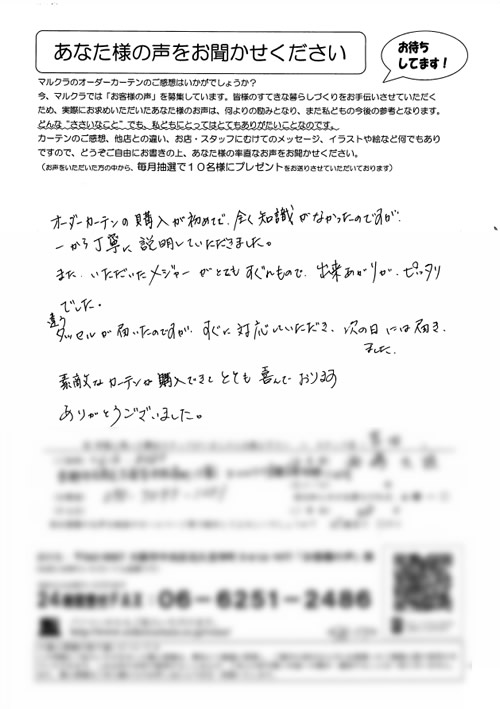 あなた様の声をお聞かせください
お待ち
してます!
マルクラのオーダーカーテンのご感想はいかがでしょうか?
今、マルクラでは「お客様の声」を募集しています。皆様のすてきな暮らしづくりをお手伝いさせていただく
ため、実際にお求めいただいたあなた様のお声は、何よりの励みとなり、また私どもの今後の参考となります。
どんな“ささいなこと”でも、私どもにとってはとてもありがたいことなのです。
カーテンのご感想、他店との違い、お店・スタッフにむけてのメッセージ、イラストや絵など何でもあり
ですので、どうぞご自由にお書きの上、あなた様の率直なお声をお聞かせください。
(お声をいただいた方の中から、毎月抽選で10名様にプレゼントをお送りさせていただいております)
オーダーカーテンの購入が初めてで、全く知識がなかったのですが、
一から丁寧に説明していただきました。
また、いただいたメジャーがとてもすぐれもので、出来あがりが、ピッタリ
でした。
違う
タッセルが届いたのですが、すぐに対応していただき、次の日には届き
ました。
素敵なカーテンが購入できてとても喜んでおります
ありがとうございました。
06-6251-2486